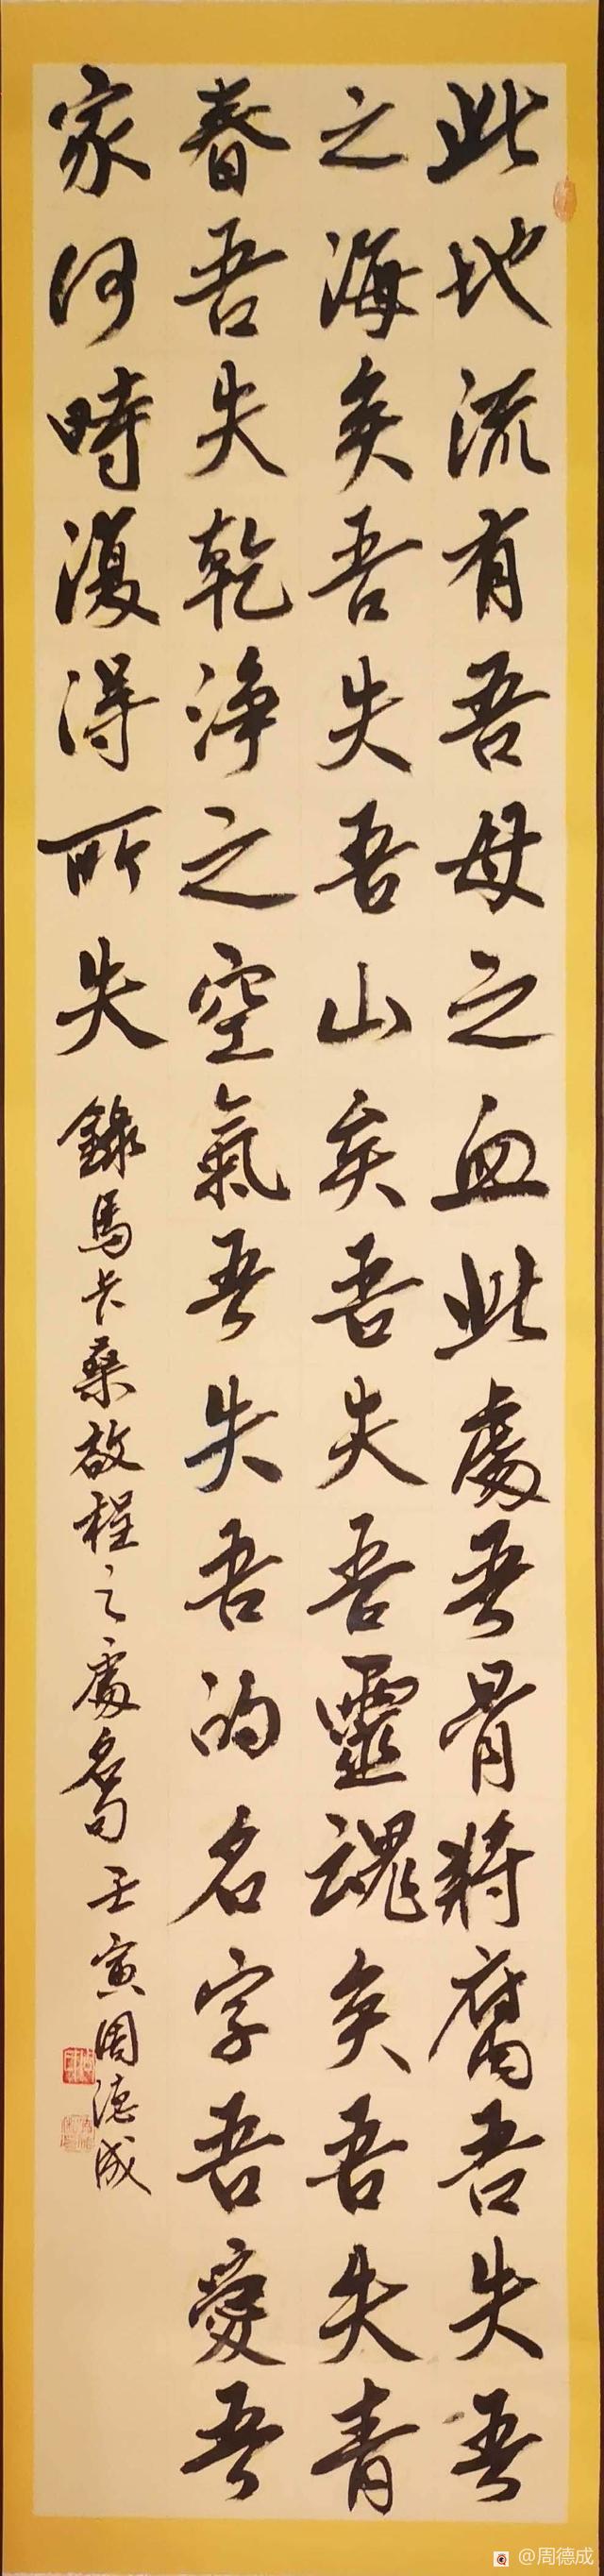 此地流有吾母之血此處吾骨將腐吾失吾
之海矣吾失吾山矣吾失吾靈魂矣吾失青
春吾失乾淨之空氣吾失吾的名字吾愛吾
家何時復得所失
錄馬卡桑放程之處名句 壬寅周德成
@周德成